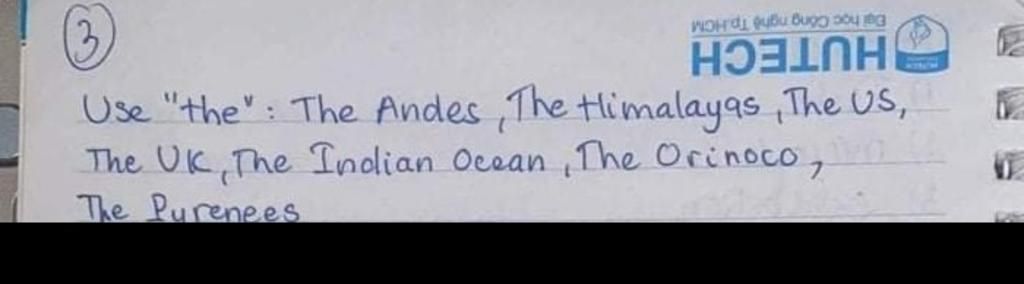 3
Đại học Công nghệ Tp.HCM
HUTECH
Use "the": The Andes, The Himalayas, The US,
The UK, The Indian Ocean, The Orinoco,
The Pyrenees